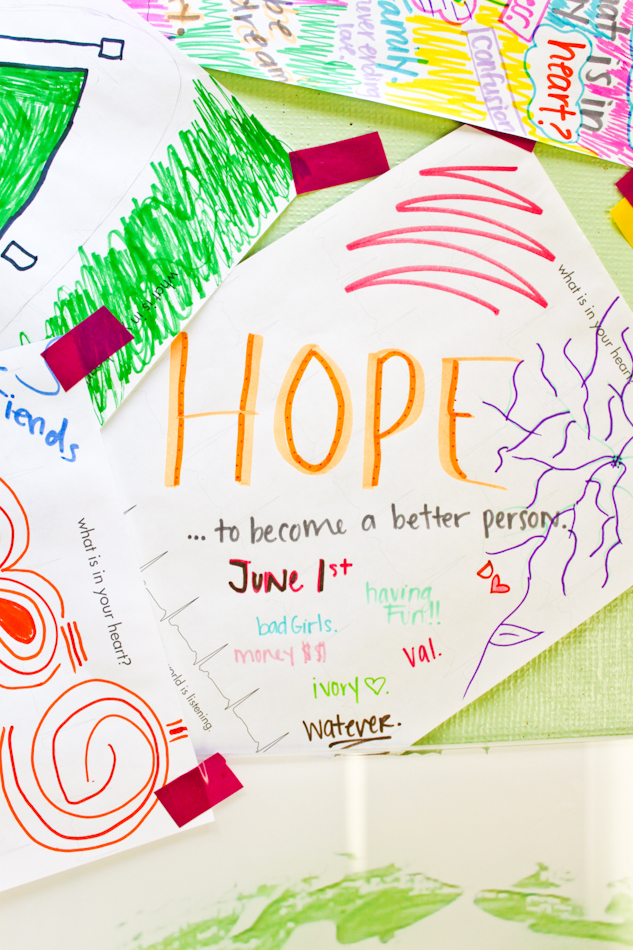 Family.
never ending
confusion
heart?
is in
what is in your heart
HOPE
... to become a better person.
June 1st
having
Fun!!
bad Girls.
money $$
val.
ivory
watever.
iends
what is in your heart?
world is listening